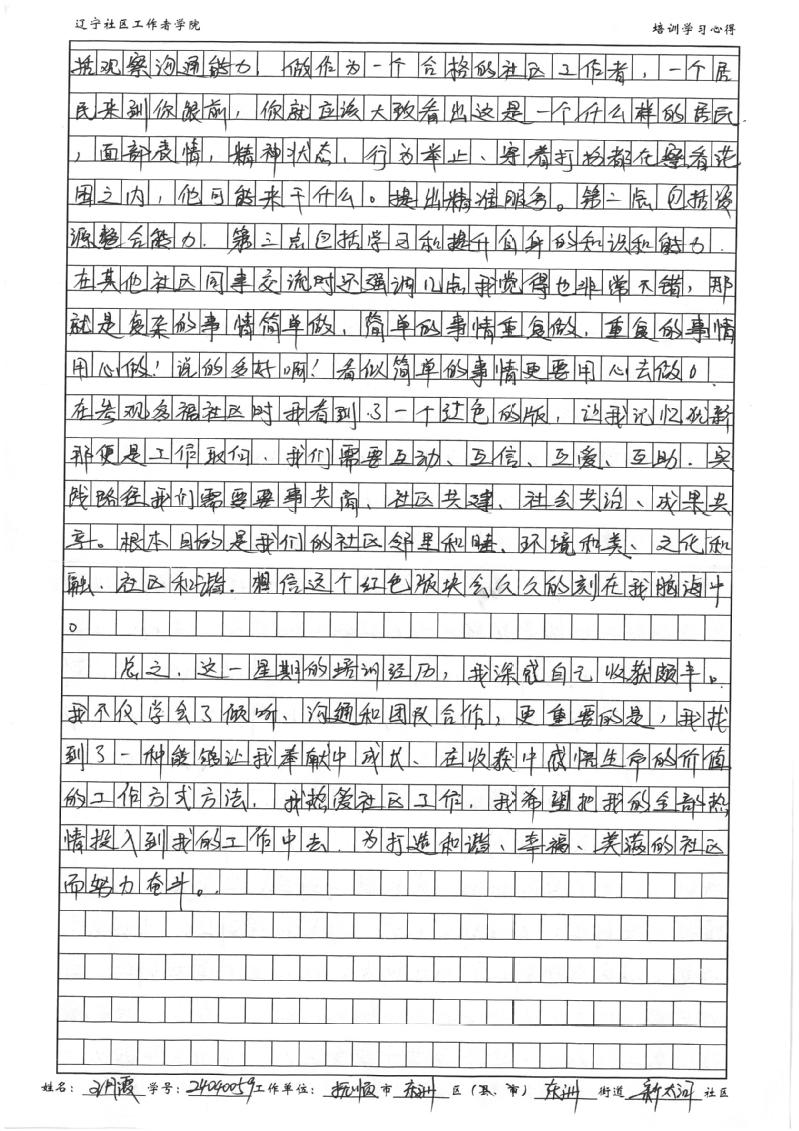 辽宁社区工作者学院 培训学习心得
括观察沟通能力，做作为一个合格的社区工作者，一个居
民来到你眼前，你就应该大致看出这是一个什么样的居民
，面部表情，精神状态，行为举止、穿着打扮都在察看范
围之内，他可能来干什么。提出精准服务。第二点包括资
源整合能力．第三点包括学习和提升自身的知识和能力．
在其他社区同事交流时还强调几点我觉得也非常不错，那
就是复杂的事情简单做，简单的事情重复做，重复的事情
用心做！说的多好啊！看似简单的事情更要用心去做。
在参观多福社区时我看到了一个过色的版，让我记忆犹新
那便是工作取向．我们需要互动、互信、互爱、互助．实
践路径我们需要要事共商、社区共建、社会共治、成果共
享。根本目的是我们的社区邻里和睦、环境和美、文化和
融、社区和谐．想信这个红色版块会久久的刻在我脑海中
。
总之，这一星期的培训经历，我深感自己收获颇丰。
我不仅学会了倾听、沟通和团队合作，更重要的是，我找
到了一种能够让我奉献中成长、在收获中感悟生命的价值
的工作方式方法．我热爱社区工作，我希望把我的全部热
情投入到我的工作中去．为打造和谐、幸福、美满的社区
而努力奋斗。
姓名：月霞 学号：24040059 工作单位：抚顺市 东洲 区（县、市） 东洲 街道 新太河 社区